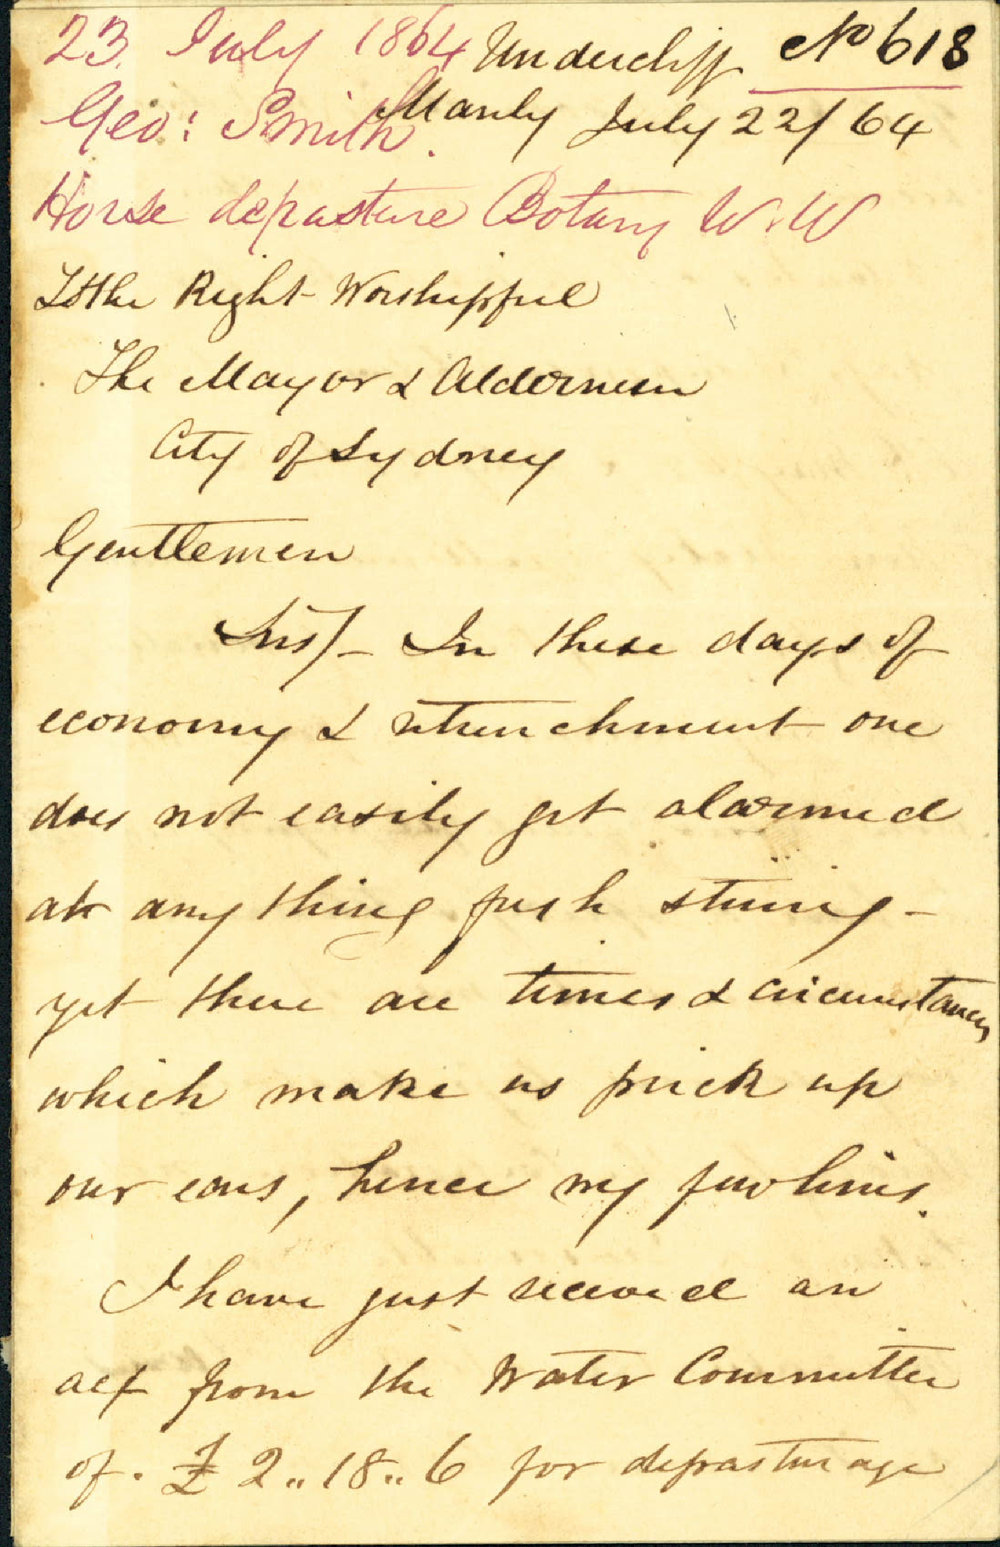 23. July 1864
Undercliff No 618
Geo: Smith.
Manly July 22/64
Horse depasture Botany W.W
To the Right Worshipful
The Mayor & Aldermen
City of Sydney
Gentlemen
Sirs/- In these days of
economy & retrenchment one
does not easily get alarmed
at any thing fresh stiring -
yet there are times & circumstances
which make us prick up
our ears, hence my few lines.
I have just received an
act from the Water Committee
of. £2..18..6 for depasturage